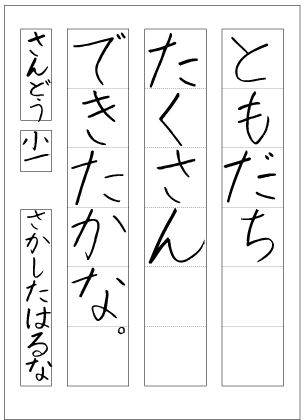 ともだち
たくさん
できたかな。
さんどう 小一 さかしたはるな